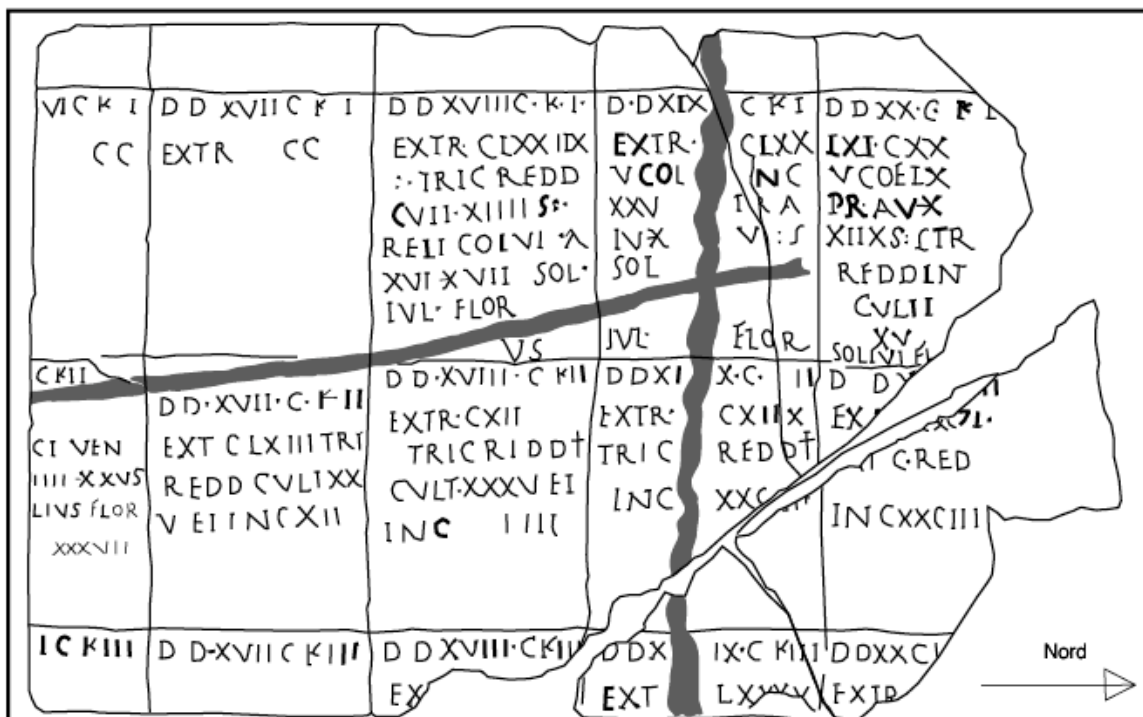 VI C K I
CC
D D XVII C K I
EXTR CC
D D XVIII C· K· I·
EXTR· CLXXIIX
:· TRIC REDD
CVII·XIIII S:·
RELI COLVI·
XVI·XVII SOL·
IVL· FLOR
VS
D·DXIX C K I
EXTR· CLXX
V COL INC
XXV I R A
IVX V : S
SOL
IVL· FLOR
D D XX·C K I
EXI·CXX
V COELX
PR·AV·X
XIIXS:·CTR
REDDIN
CVLII
XV
SOL
C K II
CI VEN
IIII·XXVS
LIVS FLOR
XXXVII
D D·XVII·C·K II
EXT CLXIII TRI
REDD CVLIXX
V EI INC XII
D D·XVIII·C K II
EXTR·CXII
TRIC RIDD†
CVLT·XXXV EI
INC IIII
D D XI X·C· II
EXTR· CXIIX
TRIC REDD†
INC XXC
D D X
EX
C·RED
INCXXCIII
I C K III
D D·XVII C K III
D D XVIII·C K III
EX
D D X IX·C K III
EXT LXXXX
D D XX C
EXTR
Nord